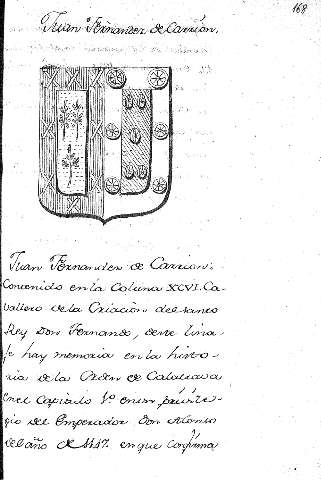 168
Juan Fernandez de Carrion.
Juan Fernandez de Carrion.
Contenido en la Coluna XCVI. Ca-
vallero de la Criacion del santo
Rey Don Fernando, deste lina-
je hay memoria en la histo-
ria de la Orden de Calatrava
en el Capitulo 1.º en un privile-
gio del Emperador Don Alonso
del año de 1147. en que confirma